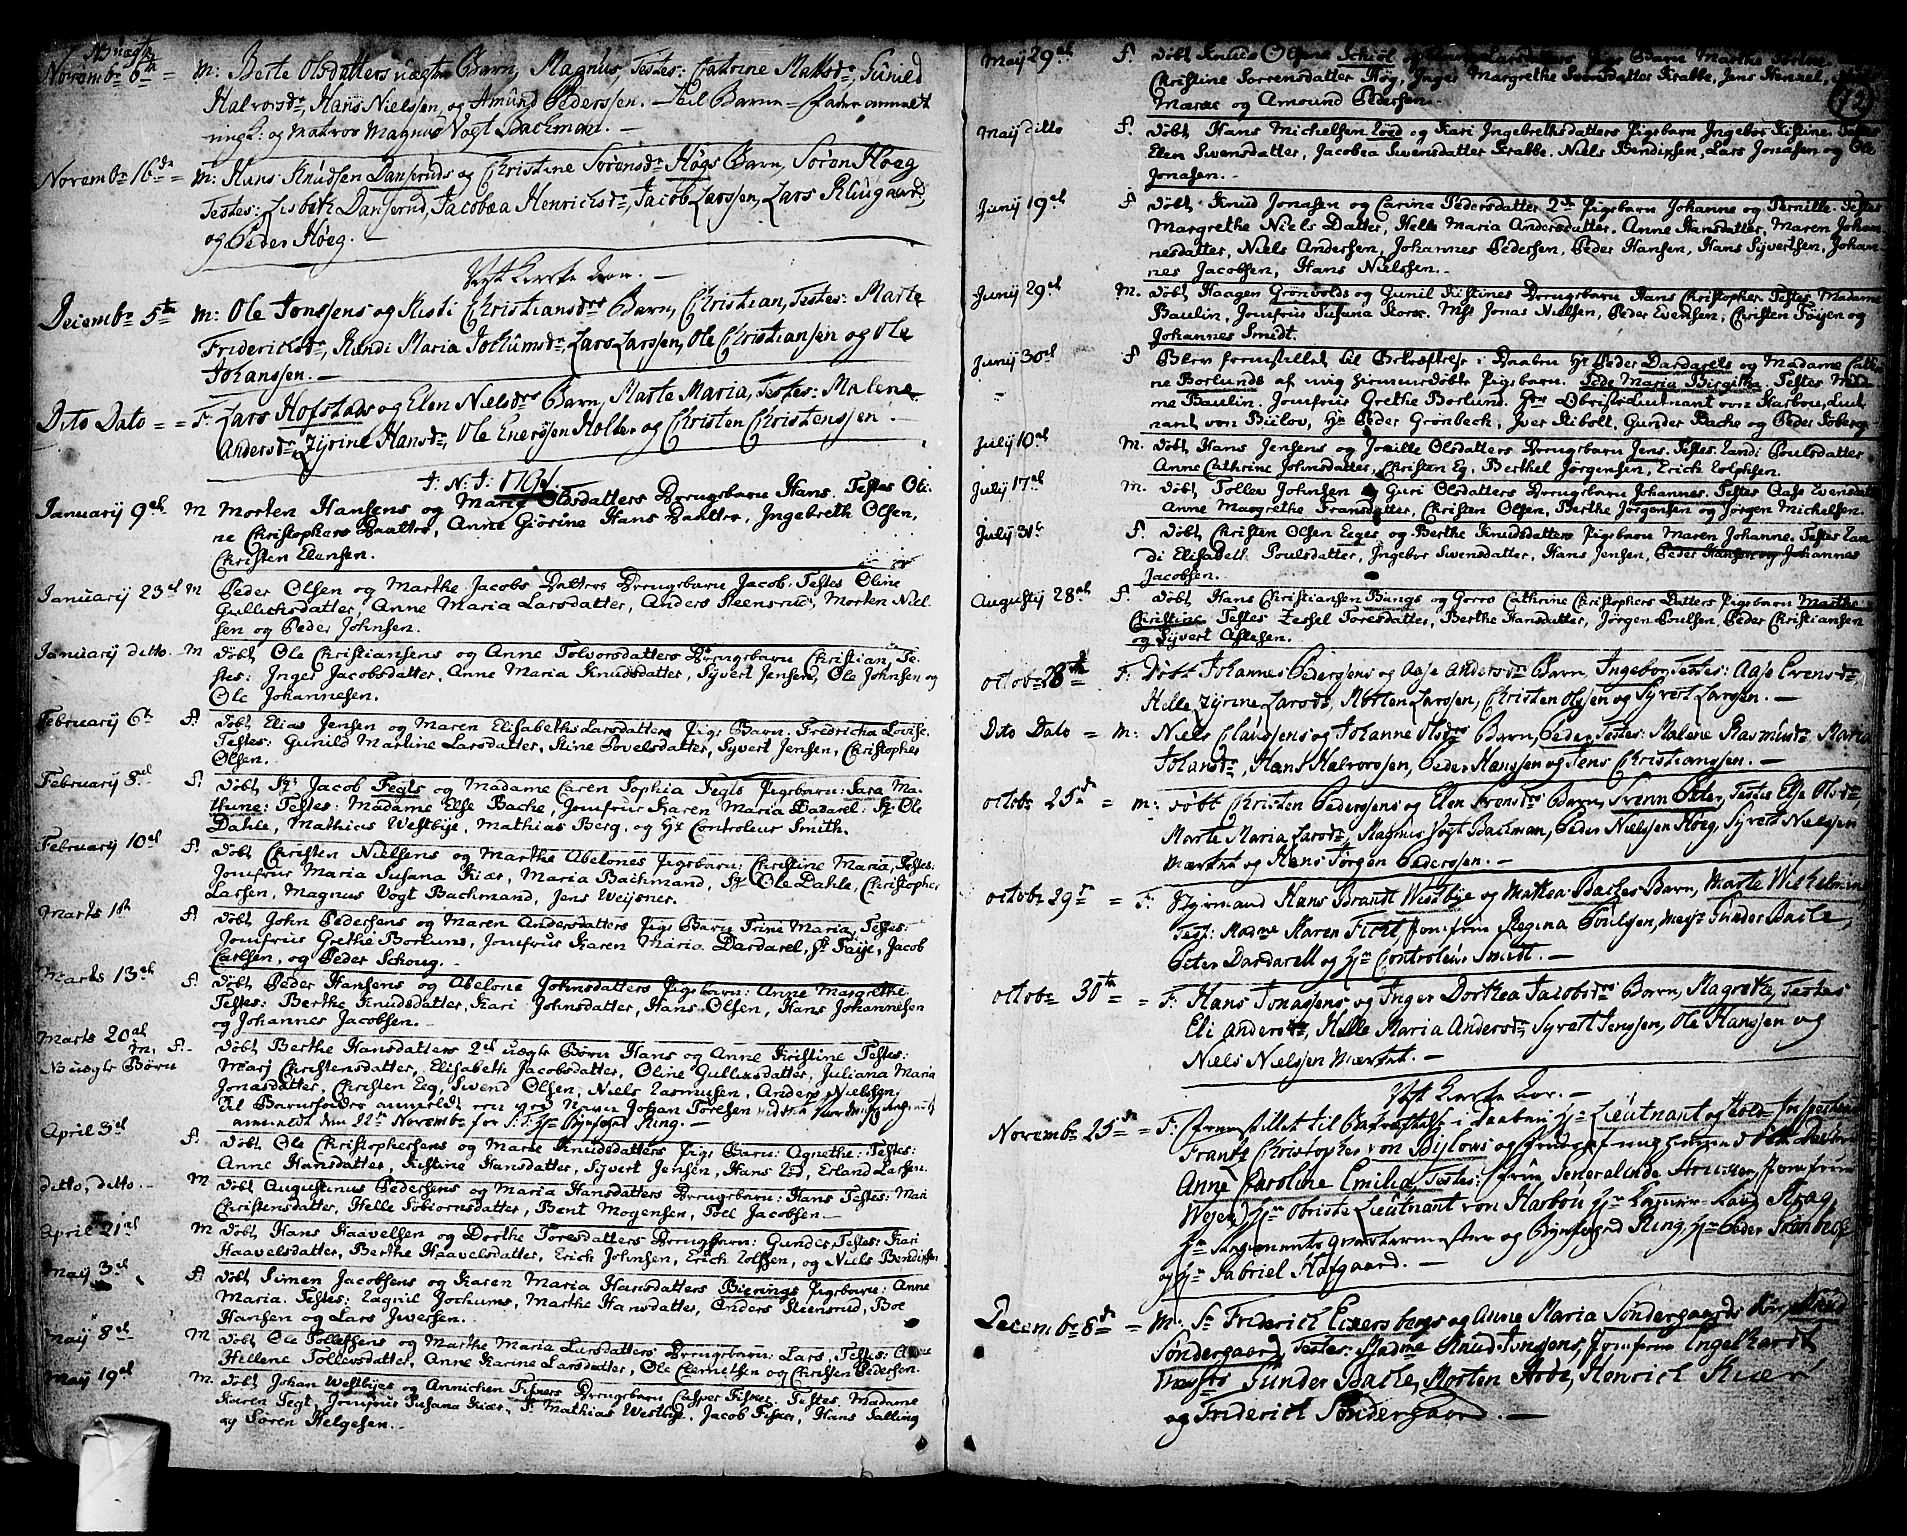 N B uægta
Novembr 6ta = m: Berte Olsdatters uægte Barn, Magnus, Testes: Catrine Mattsdr, Gunild
Halvorsdr, Hans Nielssen, og Amund Pederssen. - Til Barne-fader anmelt
ungk: og Matros Magnus Vogt Bachman. -
Novembr 16de = m: Hans Knudsen Dansruds og Christine Sørensdr Høgs Barn, Søren Høeg
Testes: Lisbeth Dansernd, Jacobæa Henrichsdr, Jacob Larssen, Lars Kluugaard,
og Peder Høeg. -
Øst Kircke dør. -
Decembr 5te m: Ole Jonssens og Kisti Christiansdrs Barn, Christian, Testes: Marte
Friderichsdr, Randi Maria Jochumsdr, Lars Larssen, Ole Christianssen og Ole
Johanssen. -
Dito Dato = = F: Lars Hofstads og Elen Nielsdrs Barn, Marte Maria, Testes: Malene
Andersdr, Zyrine Hansdr, Ole Enerssen Holter og Christen Christenssen -
J: N: J: 1791.
Januarij 9de M Morten Hansens og Marie Olsdatters Drengsbarn Hans. Testes Oli-
ne Christophers Daatter, Anne Giørine Hans Daatter, Ingebreth Olsen,
Christen Elensen.
Januarij 23de M Peder Olsen og Marthe Jacobs Datters Drengsbarn Jacob. Testes Oline
Gullichsdatter, Anne Maria Larsdatter, Anders Steensrud, Morten Niel-
sen og Peder Johnsen.
Januarij ditto. M Døbt Ole Christiansens og Anne Tolvorsdatters Drengsbarn Christian, Te-
stes: Inger Jacobsdatter, Anne Maria Knudsdatter, Syvert Jensen, Ole Johnsen og
Ole Johannesen.
Februarij 6te F. Døbt Elias Jensen og Maren Elisabeths Larsdatters Pigs Barn. Fredricha Lovise.
Testes: Gunild Martine Larsdatter, Stine Povelsdatter, Syvert Jensen, Christopher
Olsen.
Februarij 8de F. Døbt Sr Jacob Fegts og Madame Caren Sophia Fegts Pigebarn: Sara Ma-
thune: Testes: Madame Else Bache, Jomfrue Karen Maria Dardarel: Sr Ole
Dahle, Mathias Westbije, Mathias Berg, og Hr Controleur Smith.
Februarij 10de F. Døbt Christen Nielsens og Marthe Abelones Pigebarn: Christine Maria, Testes:
Jomfrue Maria Susana Kiær, Maria Bachmand, Sr Ole Dahle, Christopher
Larsen, Magnus Vogt Bachmand, Jens Weisner.
Marts 1te F. Døbt John Pedersens og Maren Andersdatters Pigs Barn Trine Maria, Testes:
Jomfrue Grethe Borlund, Jomfrue Karen Maria Dardarel, Sr Faije, Jacob
Carlsen, og Peder Schoug.
Marts 13de F. Døbt Peder Hansens og Abelone Johnsdatters Pigebarn: Anne Margrethe
Testes: Berthe Knudsdatter, Kari Johnsdatter, Hans Olsen, Hans Johannesen
og Johannes Jacobsen.
Marts 20de m. F. Døbt Berthe Hansdatters 2de uægte Børn Hans og Anne Kristine Testes:
N B uægte Børn Marj Christensdatter, Elisabeth Jacobsdatter, Oline Gullixsdatter, Juliana Maria
Jonasdatter, Christen Eeg, Svend Olsen, Niels Rasmusen, Anders Nielsen
til Barnefader anmeldt Johan Toresen
anmeldt den 22de Novembr for S: T: Hr Bijefoget Ring. -
April 3de F. Døbt Ole Christophersens og Marte Knudsdatters Pigs Barn: Agnethe: Testes:
Anne Hansdatter, Kistine Hansdatter, Sijvert Jensen, Hans Lød, Erland Larsen.
ditto, ditto. M Døbt Augustinus Pedersens og Maria Hansdatters Drengsbarn: Hans Testes: Mari
Christensdatter, Helle Tobiornsdatter, Bent Mogensen, Poel Jacobsen.
April 21de M Døbt Hans Haavelsen og Dorthe Toresdatters Drengsbarn: Gunder, Testes: Kari
Haavelsdatter, Berthe Haavelsdatter, Erich Johnsen, Erich Rolfsen, og Niels Bendixsen
Maij 3de F. Døbt Simen Jacobsens og Karen Maria Hansdatters Bierings Pigebarn: Anne
Maria. Testes: Ragnil Jochums, Marthe Hansdatter, Anders Steensrud, Boe
Hansen og Lars Iversen.
Maij 8de M Døbt Ole Tollefsens og Marthe Maria Larsdatters Drengsbarn: Lars, Testes: Anne
Hellene Tollevsdatter, Anne Karine Larsdatter, Ole Clemetsen og Christen Pedersen.
Maij 19de M. Døbt Johan Westbijes og Annichen Fisxers Drengsbarn Casper Fisxer, Testes. Madame
Karen Fegt, Jomfrue Susana Kiær, Sr Mathias Westbije, Jacob Fisxer, Hans Salling
og Søren Helgesen.
12
Maij 29de F. Døbt Knud Olsens Schiøl og Larsdatters Pigs Barn Marthe
Christine Sorrensdatter Høg, Inger Margrethe Svensdatter Krabbe, Jens Henzel,
Mærse og Amound Pedersen.
Maij ditto F. Døbt Hans Michelsen Løed og Kari Ingebrethsdatters Pigsbarn Ingebor Kistine. Testes
Elen Svensdatter, Jacobea Svensdatter Krabbe. Niels Bendixsen, Lars Jonasen og Ole
Jonasen.
Junij 19de F. Døbt Knud Jonasen og Carina Pedersdatter 2de Pigsbarn Johanne og Pernille. Testes
Margrethe Niels Datter, Helle Maria Andersdatter. Anne Hansdatter, Maren Johan-
nesdatter, Niels Andersen, Johannes Pedersen, Peder Hansen, Hans Sijvertsen, Johan-
nes Jacobsen, Hans Nielssen.
Junij 29de M. Døbt Haagen Grønvolds og Gunil Kistines Drengsbarn Hans Christopher. Testes. Madame
Baulin, Jomfrue Susana Korx. Mss Jonas Nielsen, Peder Evensen, Christen Føijen og
Johannes Smidt.
Junij 30de F Blev fremstillet til Bekræftelse i Daaben Hr Peder Dardarels og Madame Cathri-
ne Borlunds af mig hiemmedøbte Pigsbarn. Fede Maria Birgitha. Testes Mada-
me Baulin. Jomfrue Grethe Borlund. Herr ObristeLieutnant von Harbou, Liut
nant von Bülov, Hr Peder Grønbeck, Iver Kibolt, Gunder Bache og Peder Soberg.
Julij 10de M. Døbt Hans Jensens og Joxille Olsdatters Drengsbarn Jens. Testes Randi Poulsdatter
Anne Cathrine Johnsdatter, Christen Eg, Berthel Jørgensen, Erich Rolphsen.
Julij 17de M. Døbt Tollev Johnsen og Guri Olsdatters Drengsbarn Johannes. Testes Aase Evensdatter
Anne Margrethe Fransdatter, Christen Olsen, Berthe Jørgensen og Jørgen Michelsen.
Julij 31te F. Døbt Christen Olsen Eeges og Berthe Knudsdatters Pigsbarn Maren Johanne. Testes Ran-
di Elisabeth Poulsdatter, Ingebor Svensdatter, Hans Jensen, Peder Hansen og Johannes
Jacobsen.
Augustij 28de F. Døbt Hans Christiansen Bungs og Gorro Cathrine Christophers Datters Pigsbarn Marthe
Christine Testes Zessel Toresdatter, Berthe Hansdatter, Jørgen Poulsen, Peder Christiansen
og Sijvert Aslesen.
octobr 28de F: Døbt Johannes Bergsens og Aase Andersdrs Barn, Ingebor, Testes: Aase Evensdr
Helle Zyrine Larsdr, Morten Larssen, Christen Olssen og Syvert Larssen. -
Dito Dato = m: Niels Claussens og Johanne Olsdrs Barn, Peder, Testes: Malene Rasmusdr, Maria
Johansdr, Hans Halvorssen, Peder Hanssen og Jens Christianssen. -
octobr 25de = m: døbt Christen Pederssens og Elen Svensdrs Barn, Svenn Peter, Testes Else Olsdr
Marte Maria Larsdr, Magnus Vogt Bachman, Peder Nielssen Høeg, Syvert Nielssen
Mærket og Hans Jørgen Pederssen. -
octobr 29de = F: Styrmand Hans Brandt Westbye og Mattea Baches Barn, Marte Wilhelmine
Test: Madme Karen Ficht, jomfrue Regina Poulssen, monsr Gunder Bache,
Peter Dardarell og Hr Controleur Smidt. -
octobr 30te = F: Hans Jonassens og Inger Dorthea Jacobsdrs Barn, Magrete, Testes
Eli Andersdr, Helle Maria Andersdr, Syvert Jenssen, Ole Hanssen og
Niels Nielssen Mærket. -
Øst Kircke dør. -
Novembr 25de = F: fremstillet til Bekræftelse i Daaben Hr Lieutnant og Told-Inspecteur
Frantz Christopher von Bylows og
Anne Caroline Emilia, Testes: frue Generalinde jomfrue
Weyen, Hr Obriste Lieutnant von Harbou, Hr Krag
Hr Regiments qvarteermester og Byefoged Ring, Hr Peder
og Hr Gabriel Hofgaard. -
Decembr 8de = m: Sr Friderich Eixersbergs og Anne Maria Søndergaards Søn, Knud
Søndergaard, Testes: Madme Knud Jonssens, Jomfrue Engelhardt
Gunder Bache, Morten Arbe, Henrich Kiær
og Friderich Søndergaard. -